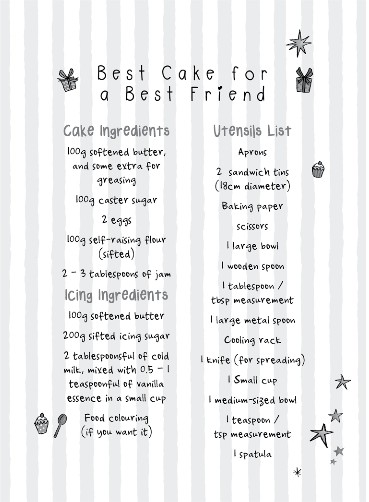 Best Cake for
a Best Friend
Cake Ingredients
100g softened butter,
and some extra for
greasing
100g caster sugar
2 eggs
100g self-raising flour
(sifted)
2 - 3 tablespoons of jam
Icing Ingredients
100g softened butter
200g sifted icing sugar
2 tablespoonsful of cold
milk, mixed with 0.5 - 1
teaspoonful of vanilla
essence in a small cup
Food colouring
(if you want it)
Utensils List
Aprons
2 sandwich tins
(18cm diameter)
Baking paper
scissors
1 large bowl
1 wooden spoon
1 tablespoon /
tbsp measurement
1 large metal spoon
Cooling rack
1 knife (for spreading)
1 Small cup
1 medium-sized bowl
1 teaspoon /
tsp measurement
1 spatula